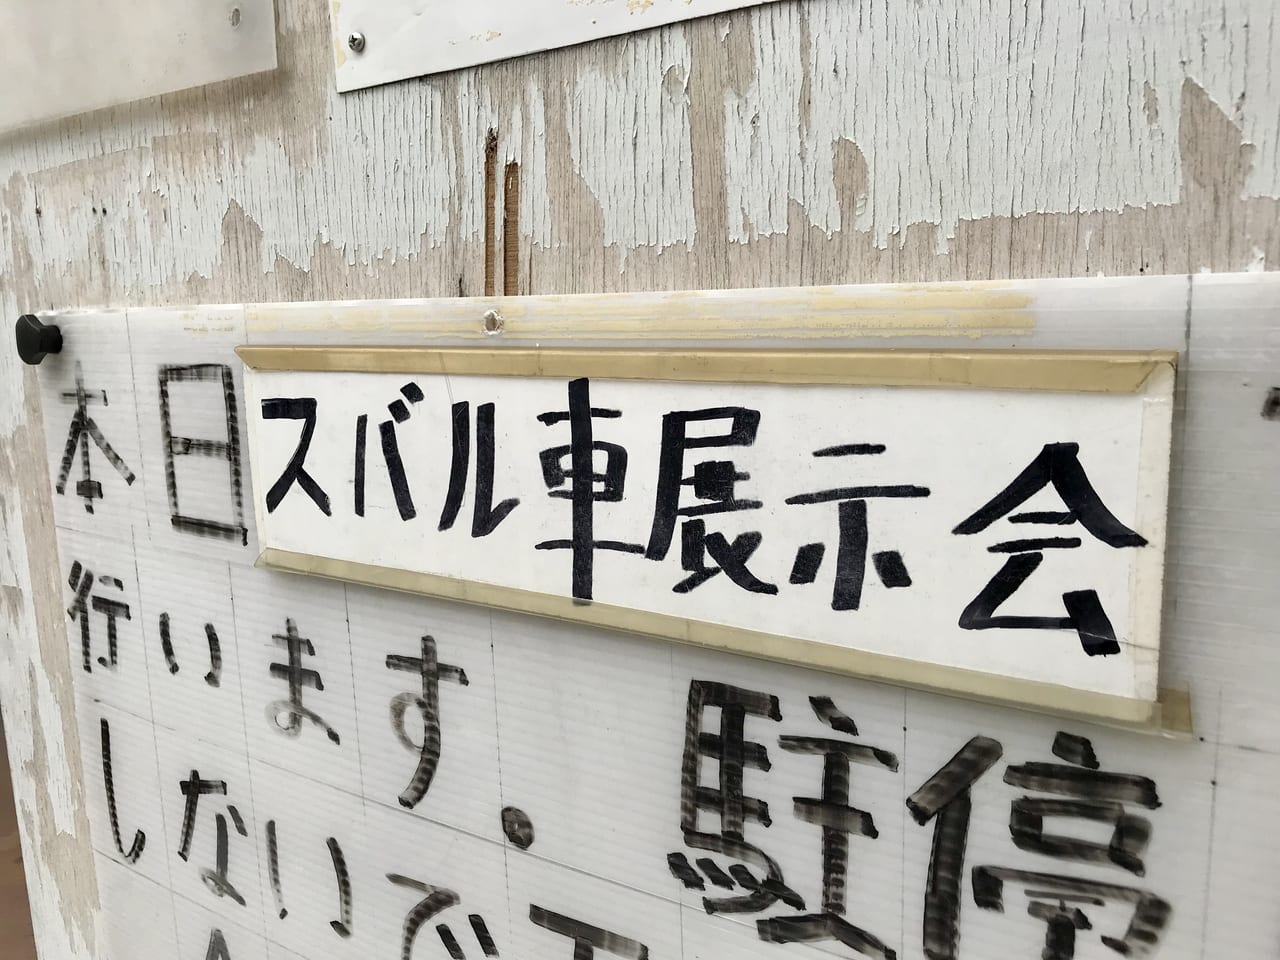 本日スバル車展示会
行います。駐停
しないで下